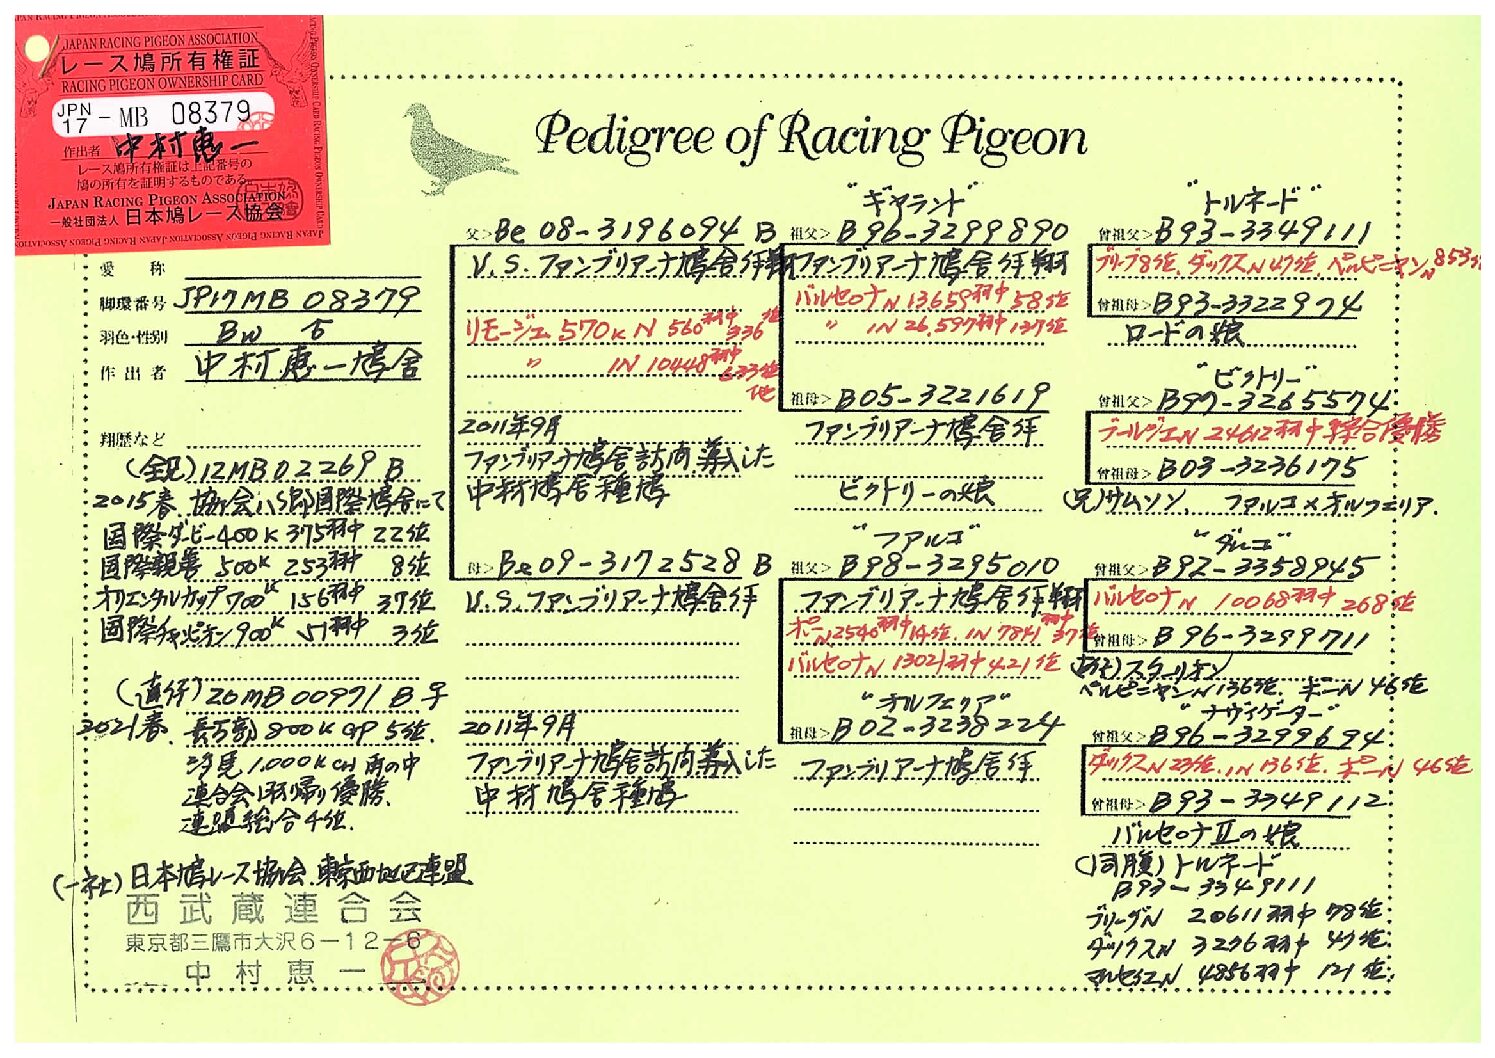 JAPAN RACING PIGEON ASSOCIATION
レース鳩所有権証
RACING PIGEON OWNERSHIP CARD
JPN
17 - MB 08379
作出者 中村恵一
レース鳩所有権証は上記番号の
鳩の所有を証明するものである。
JAPAN RACING PIGEON ASSOCIATION
一般社団法人 日本鳩レース協会
Pedigree of Racing Pigeon
愛称
脚環番号 JP17MB 08379
羽色・性別 BW
作出者 中村恵一鳩舎
翔歴など
(全兄)12MB02269 B
2015春 協会八郷国際鳩舎にて
国際ダービー400K 375羽中 22位
国際親善 500K 253羽中 8位
オリエンタルカップ700K 156羽中 37位
国際チャンピオン900K 51羽中 3位
(直仔)20MB00971 B ♀
2021春 長万部800KGP 5位.
汐見1.000KCH 雨の中
連合会1羽帰り優勝.
連盟総合4位.
(一社)日本鳩レース協会.東京西地区連盟
西武蔵連合会
東京都三鷹市大沢6-12-6
中村恵一
父> Be 08-3196094 B
V.S.ファンブリアーナ鳩舎作翔
リモージュ 570K N 560羽中 336位
〃 IN 10448羽中 633位
他
2011年9月
ファンブリアーナ鳩舎訪問導入した
中村鳩舎種鳩
母> Be 09-3172528 B
V.S.ファンブリアーナ鳩舎作
2011年9月
ファンブリアーナ鳩舎訪問導入した
中村鳩舎種鳩
"ギャラント"
祖父> B96-3299890
ファンブリアーナ鳩舎作翔
バルセロナN 13659羽中 58位
〃 IN 26.597羽中 137位
祖母> B05-3221619
ファンブリアーナ鳩舎作
ビクトリーの娘
"ファルコ"
祖父> B98-3295010
ファンブリアーナ鳩舎作翔
ポーN2540羽中14位. IN 7841羽中37位
バルセロナN 13021羽中421位
"オルフェリア"
祖母> B02-3238224
ファンブリアーナ鳩舎作
"トルネード"
曾祖父> B93-3349111
ブリーブ8位. ダックスN47位. ペルピニャンN853位
曾祖母> B93-3322974
ロードの娘
"ビクトリー"
曾祖父> B97-3265574
ブールジュN 24612羽中総合優勝
曾祖母> B03-3236175
(兄)サムソン. ファルコ×オルフェリア.
"ダルコ"
曾祖父> B92-3358945
バルセロナN 10068羽中268位
曾祖母> B96-3299711
スターリオン
ペルピニヤンN136位. ポーN 46位
"ナヴィゲーター"
曾祖父> B96-3299694
ダックスN23位. IN136位. ポーN 46位
曾祖母> B93-3349112
バルセロナⅡの娘
(同腹)トルネード
B93-3349111
ブリーヴN 20611羽中 78位
ダックスN 3276羽中 47位
マルセイユN 4856羽中 121位